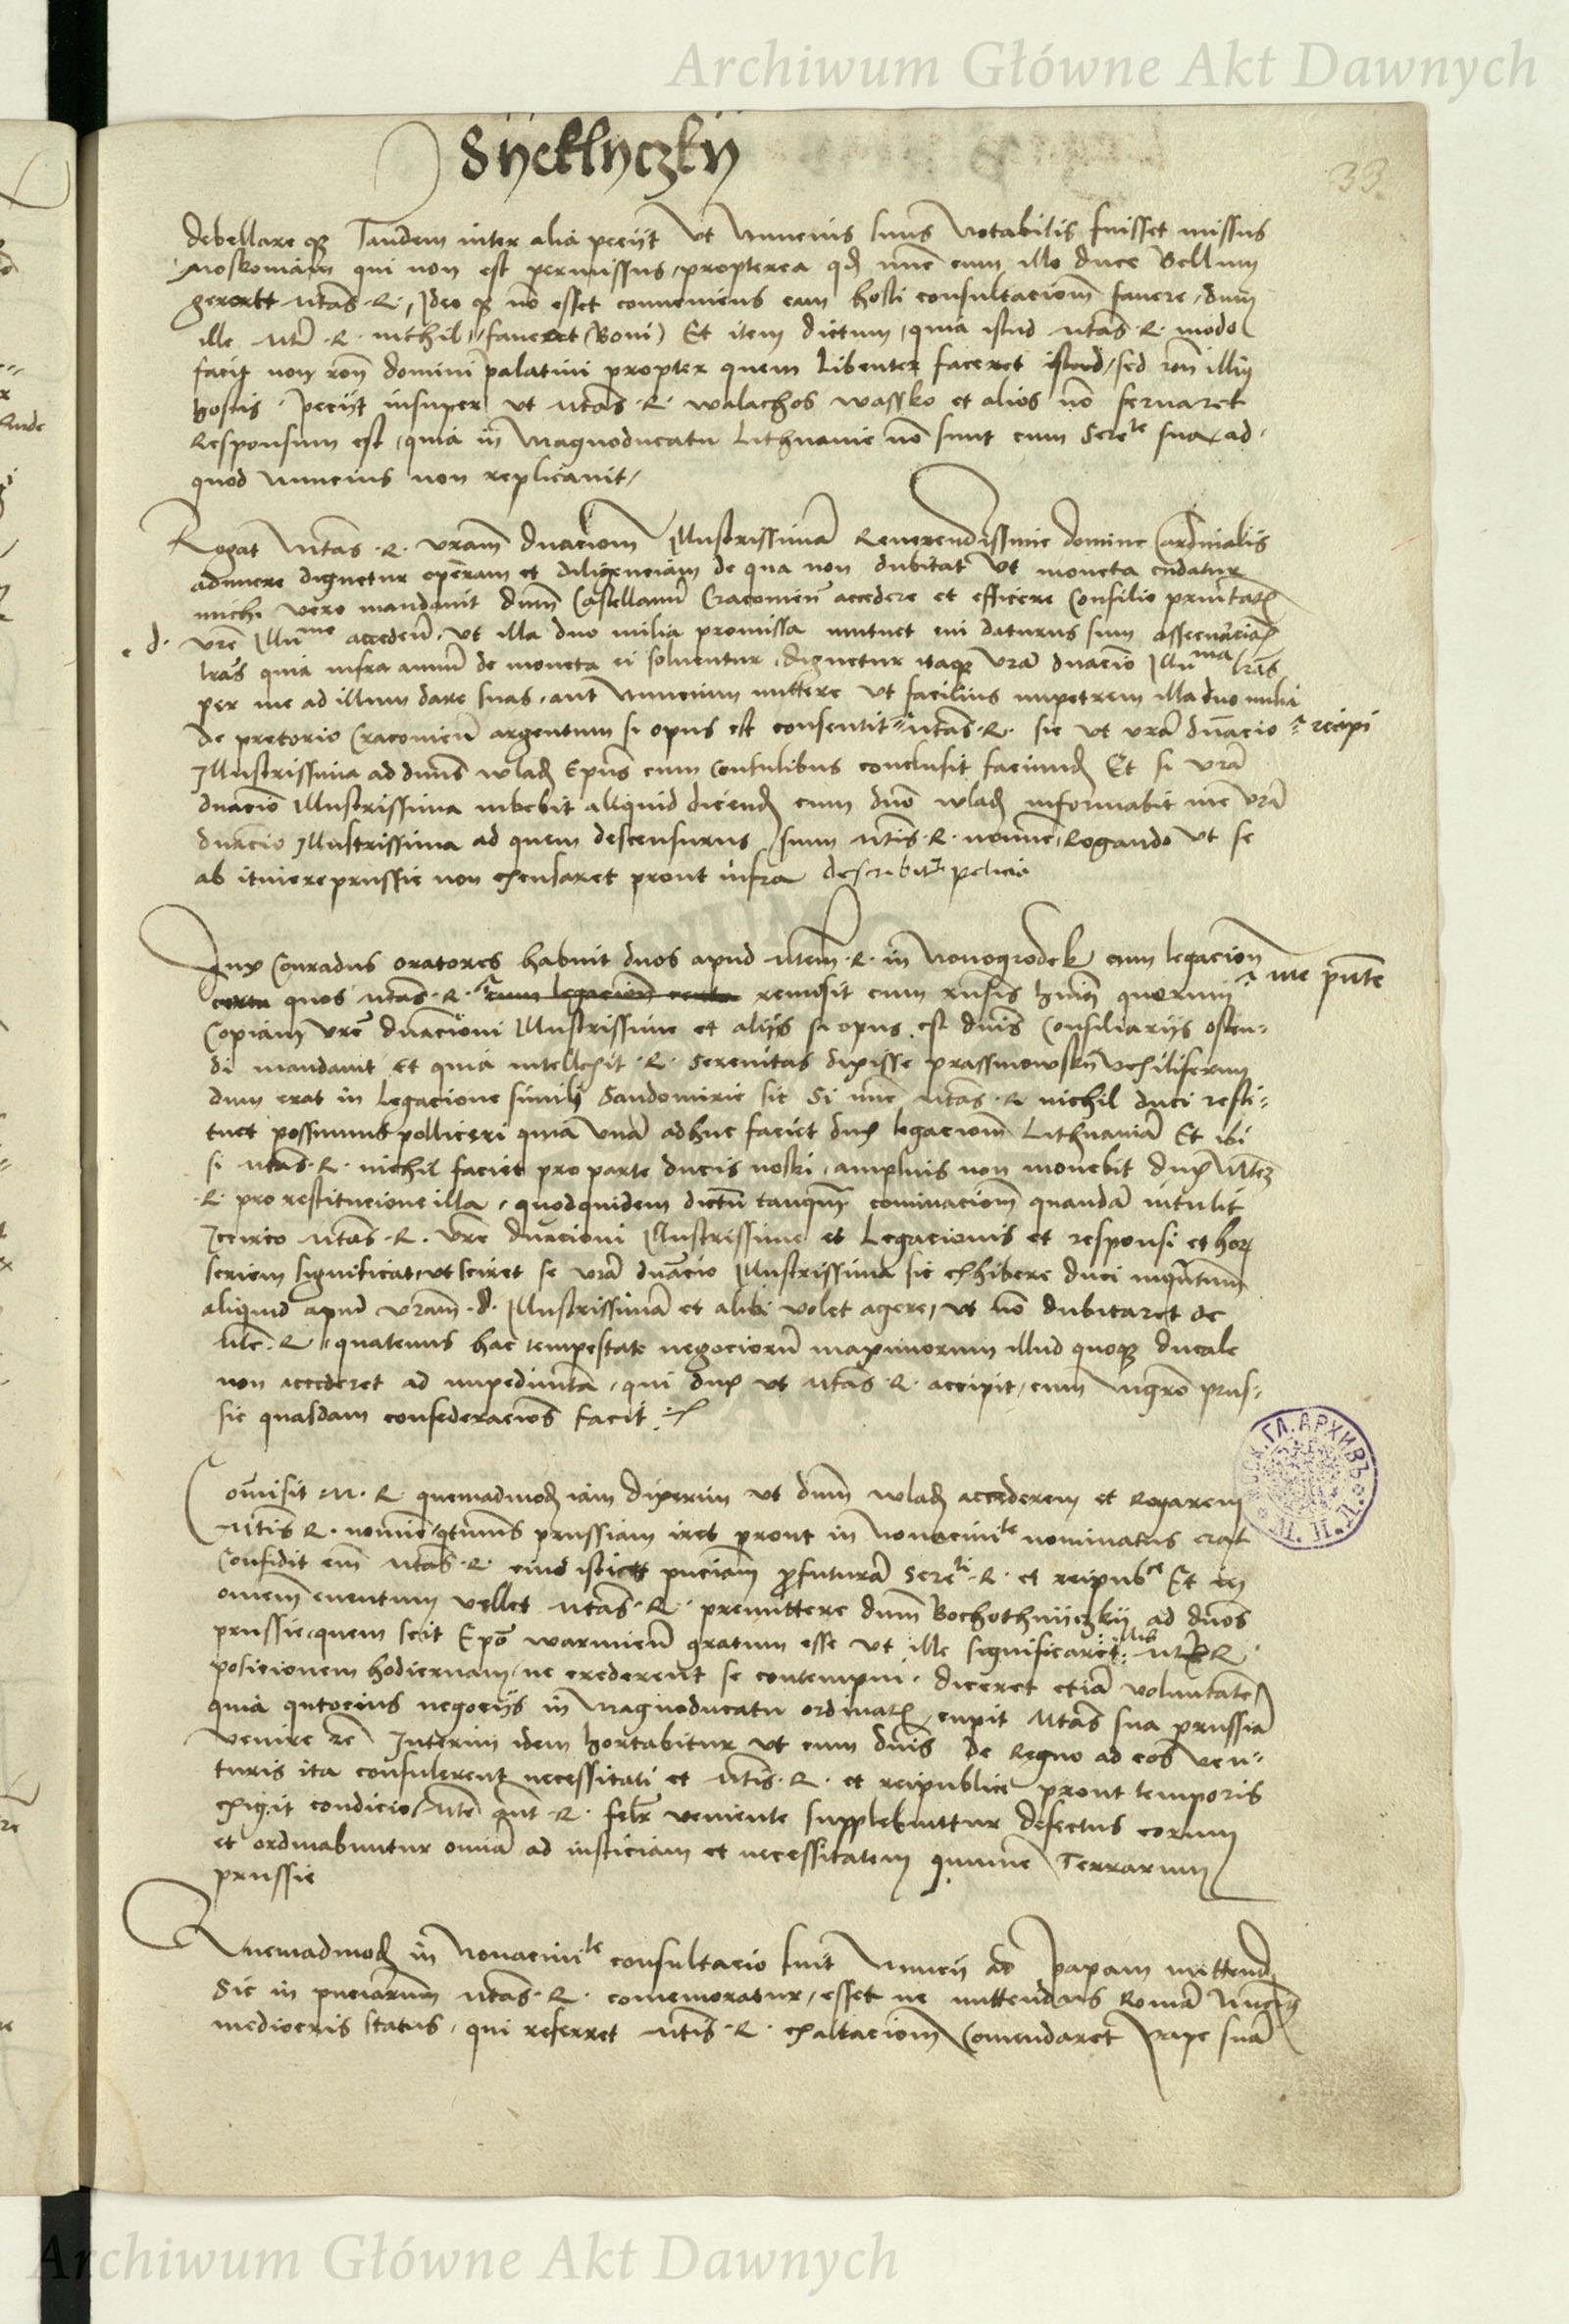 Archiwum Główne Akt Dawnych
Sÿeklÿczkÿ
33
debellare qȝ Tandem inter alia peciit Vt Nuncius suus Notabilis fuisset missus
Moskouiam qui non est permissus, propterea qd nunc cum illo duce Bellum
gereret Mtas R. Ideo qȝ no esset conueniens eam hosti consultaciom fauere, dum
ille Mti R. nichil faueret Boni Et item dictum, quia istud Mtas R. modo
facit non ron domini palatini propter quem Libenter faceret istud, sed ron illiu
hostis. Peciit insuper ut Mtas R. walachos wassko et alios no seruaret
Responsum est, quia in Magnoducatu Lithuanie no sunt cum Serete sua, ad
quod Nuncius non replicauit
Rogat Mtas R. vram dnaciom Illustrissimam Reuerendissime domine Cardinalis
adiuuere dignetur operam et diligenciam de qua non dubitat Vt moneta cudatur
michi vero mandauit dnm Castellanu Cracouien accedere et efficere Consilio
d. vre Illume acceden, ut illa duo milia promissa mutuet cui daturus sum
lras quia infra annu de moneta ei soluentur, dignetur itaqȝ vra dnacio Illuma lras
per me ad illum dare suas, aut Nuncium mittere Vt facilius impetrem illa duo milia
de pretorio Cracouien argentum si opus est consentit Mtas R. sic ut vra dnacio recipi
Illustrissima ad dnus wlad Epus cum consulibus conclusit faciund Et si vra
dnacio Illustrissima iubebit aliquid dicend cum dno wlad informabit me vra
dnacio Illustrissima ad quem descensurus sum Mtis R. nomine, Rogando Vt se
ab itinere prussie non excusaret prout infra describitr peticio
Dux Conradus oratores habuit duos apud Mtem R. in Nouogrodek cum legacion
certa quos Mtas R. cum legacion certa remisit cum rusis huiu quorum me pnte
Copiam vre dnacioni Illustrissime et aliis si opus est dnis Consiliariis osten-
di mandauit Et quia intellexit R. Serenitas dixisse prassmowskÿ Vexiliferum
dum erat in Legacione simili Sandomirie sic Si nunc Mtas R nichil duci resti-
tuet possumus polliceri quia vna adhuc faciet dux legaciom Lithuania Et ibi
si Mtas R. nichil faciet pro parte ducis nostri, amplius non mouebit dux Mtez
R. pro restitucione illa, quodquidem dictu tanqm cominaciom quanda intulit
Iccirco Mtas R. vre dnacioni Illustrissime et Legacionis et responsi et hoꝝ
seriem significat, ut sciret se vra dnacio Illustrissima sic exhibere duci inqntum
aliquid apud vram d. Illustrissima et alibi volet agere, ut no dubitaret de
Mte R quatenus hac tempestate negocioru maximorum illud quoqȝ ducale
non accederet ad impedimta, qui dux ut Mtas R. accipit, cum mgro prus-
sie quasdam confederacios facit
Comisit M. R quemadmod iam dixerim ut dnm wlad accederem et Rogarem
Mtis R. nomine, qtnus prussiam iret prout in Nonacuite nominatus erat
Confidit em Mtas R. eius istic pnciam pfutura Sereti R. et reipubce Et in
omem euentum vellet Mtas R. premittere dnm Bochothnÿczkÿ ad dnos
prussie, quem scit Epo warmien gratum esse ut ille significaret illis Mtis R
posicionem hodiernam, ne crederent se contempni. diceret etia voluntate
quia qntocius negociis in Magnoducatu ordinatꝭ cupit Mtas sua prussia
venire zc Interim idem hortabitur ut cum dnis de Regno ad eos ven-
turis ita consulerent necessitati et Mtis R. et reipublice prout temporis
exigit condicio, Mte ant R. felr veniente supplebuntur defectus eorum
et ordinabuntur omia ad iusticiam et necessitatem Terrarum
prussie
Quemadmod in Nonacuite consultacio fuit Nuncii ad Papam mittend
Sic in pnciarum Mtas R. comemoratur, esset ne mittendus Roma Nuncius
mediocris status, qui referret Mtis R. exaltaciom Comendaret Pape sua
Archiwum Główne Akt Dawnych